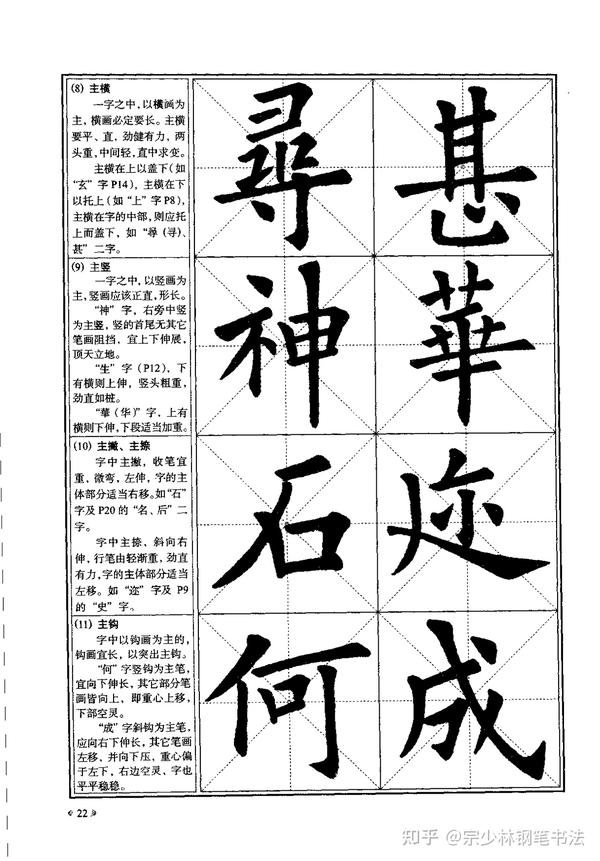 (8) 主横
一字之中，以横画为
主，横画必定要长。主横
要平、直，劲健有力，两
头重，中间轻，直中求变。
主横在上以盖下（如
“玄”字P14），主横在下
以托上（如“上”字P8），
主横在字的中部，则应托
上而盖下，如“尋（寻）、
甚”二字。
尋 甚
(9) 主竖
一字之中，以竖画为
主，竖画应该正直，形长。
“神”字，右旁中竖
为主竖，竖的首尾无其它
笔画阻挡，宜上下伸展，
顶天立地。
“生”字（P12），下
有横则上伸，竖头粗重，
劲直如桩。
“華（华）”字，上有
横则下伸，下段适当加重。
神 華
(10) 主撇、主捺
字中主撇，收笔宜
重，微弯，左伸，字的主
体部分适当右移。如“石”
字及P20的“名、后”二
字。
字中主捺，斜向右
伸，行笔由轻渐重，劲直
有力，字的主体部分适当
左移。如“迩”字及 P9
的“史”字。
石 迩
(11) 主钩
字中以钩画为主的，
钩画宜长，以突出主钩。
“何”字竖钩为主笔，
宜向下伸长，其它部分笔
画皆向上，即重心上移，
下部空灵。
“成”字斜钩为主笔，
应向右下伸长，其它笔画
左移，并向下压，重心偏
于左下，右边空灵，字也
平平稳稳。
何 成
22
知乎 @宗少林钢笔书法